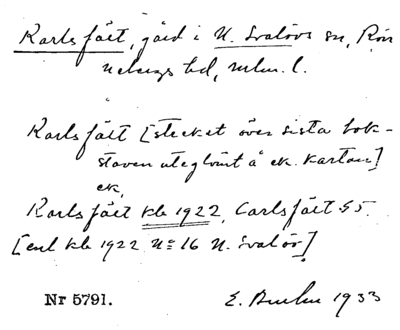 Karlsfält, gård i N. Svalövs sn, Rön
nebergs hd, mlm. l.
Karlsfält [strecket över sista bok-
staven uteglömt å ek. kartan]
ek,
Karlsfält kb 1922, Carlsfält 55.
[enl kb 1922 No 16 N. Svalöv]
Nr 5791. E. 1933